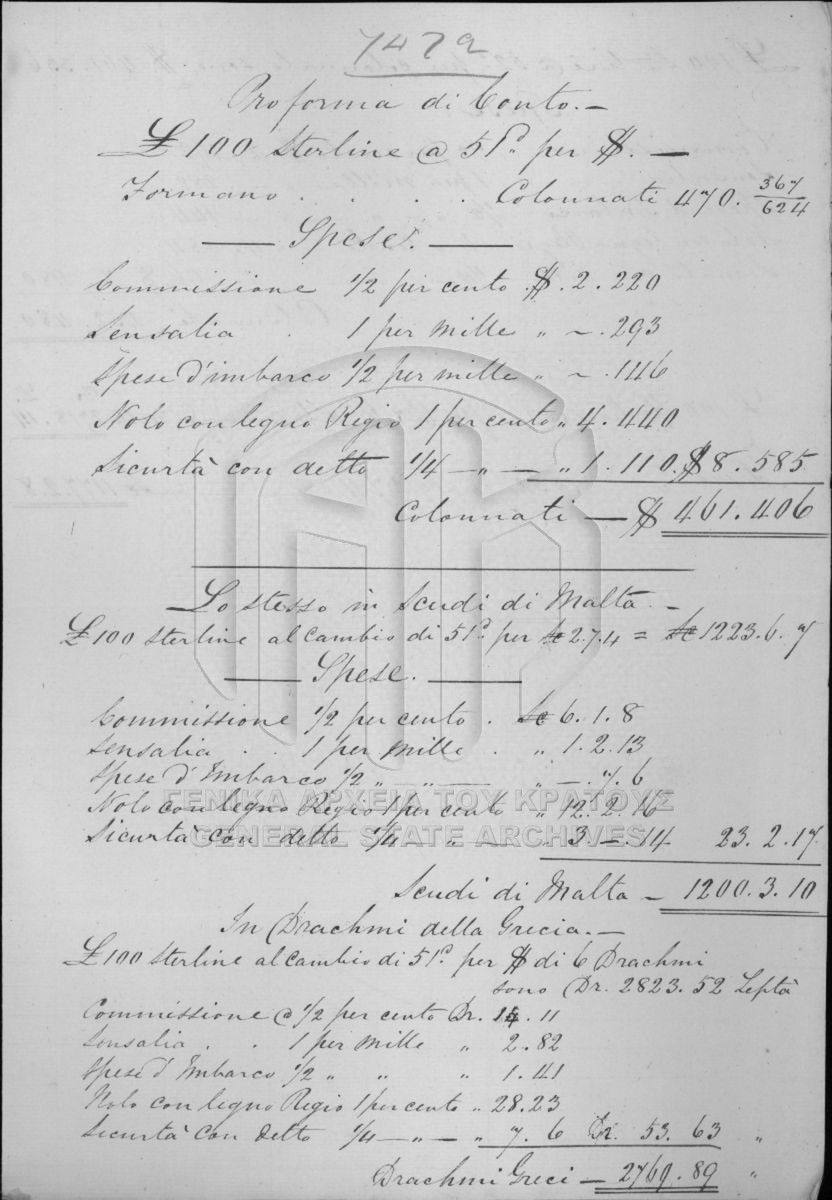 747a
Proforma di Conto. —
£ 100 Sterline @ 51d. per $. —
Formano . . . . Colonnati 470. 367/624
— Spese. —
Commissione 1/2 per cento . $. 2. 220
Sensalia . 1 per mille " ~ . 293
Spese d'imbarco 1/2 per mille " ~ . 146
Nolo con legno Regio 1 per cento " 4. 440
Sicurtà con detto 1/4 — " — " 1. 110. $ 8. 585
Colonnati — $ 461. 406
Lo stesso in Scudi di Malta. —
£ 100 Sterline al cambio di 51d. per Sc 2.7.4 = Sc 1223. 6. 7
— Spese. —
Commissione 1/2 per cento . Sc 6. 1. 8
Sensalia . . 1 per mille . " 1. 2. 13
Spese d'Imbarco 1/2 " " — " — . 7. 6
Nolo con legno Regio 1 per cento " 12. 2. 16
Sicurtà con detto 1/4 " — " 3. — . 14 23. 2. 17.
Scudi di Malta — 1200. 3. 10
In Drachmi della Grecia. —
£ 100 Sterline al cambio di 51d. per $ di 6 Drachmi
sono Dr. 2823. 52 Leptà
Commissione @ 1/2 per cento Dr. 14. 11
Sensalia . . 1 per mille " 2. 82
Spese d'Imbarco 1/2 " " " 1. 41
Nolo con legno Regio 1 per cento " 28. 23
Sicurtà con detto 1/4 — " — " 7. 6 Dr. 53. 63 "
Drachmi Greci — 2769. 89 "
ΓΕΝΙΚΑ ΑΡΧΕΙΑ ΤΟΥ ΚΡΑΤΟΥΣ
GENERAL STATE ARCHIVES